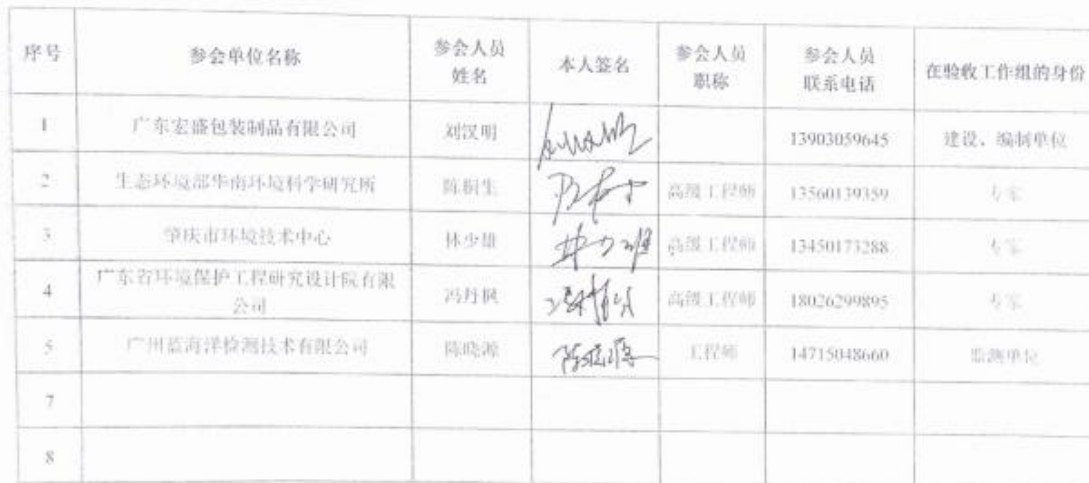 序号 参会单位名称 参会人员姓名 本人签名 参会人员职称 参会人员联系电话 在验收工作组的身份
1 广东宏盛包装制品有限公司 刘汉明 13903059645 建设、编制单位
2 生态环境部华南环境科学研究所 陈桐生 高级工程师 13560139359 专家
3 肇庆市环境技术中心 林少雄 高级工程师 13450173288 专家
4 广东省环境保护工程研究设计院有限公司 冯丹枫 高级工程师 18026299895 专家
5 广州蓝海洋检测技术有限公司 陈晓源 工程师 14715048660 监测单位
7
8